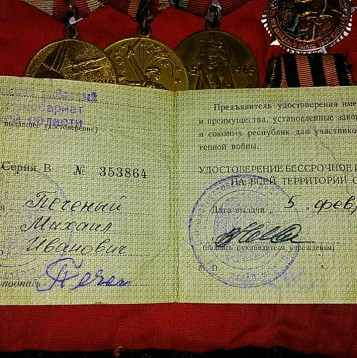 комиссариат
области
Серия В № 353864
Печеный
Михаил
Иванович
подпись
Печен
Предъявитель удостоверения име
и преимущества, установленные зако
и союзных республик для участнико
венной войны.
УДОСТОВЕРЕНИЕ БЕССРОЧНОЕ И
НА ВСЕЙ ТЕРРИТОРИИ С
Дата выдачи 5 февр
(подпись руководителя учреждения)